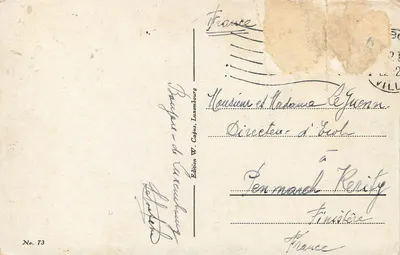 France
VILLE
Monsieur et Madame Le Guenn
Directeur d'Ecole
à
Penmarch Kerity
Finistère
France
Bonjour de Luxembourg
Edition W. Capus, Luxembourg
No. 73